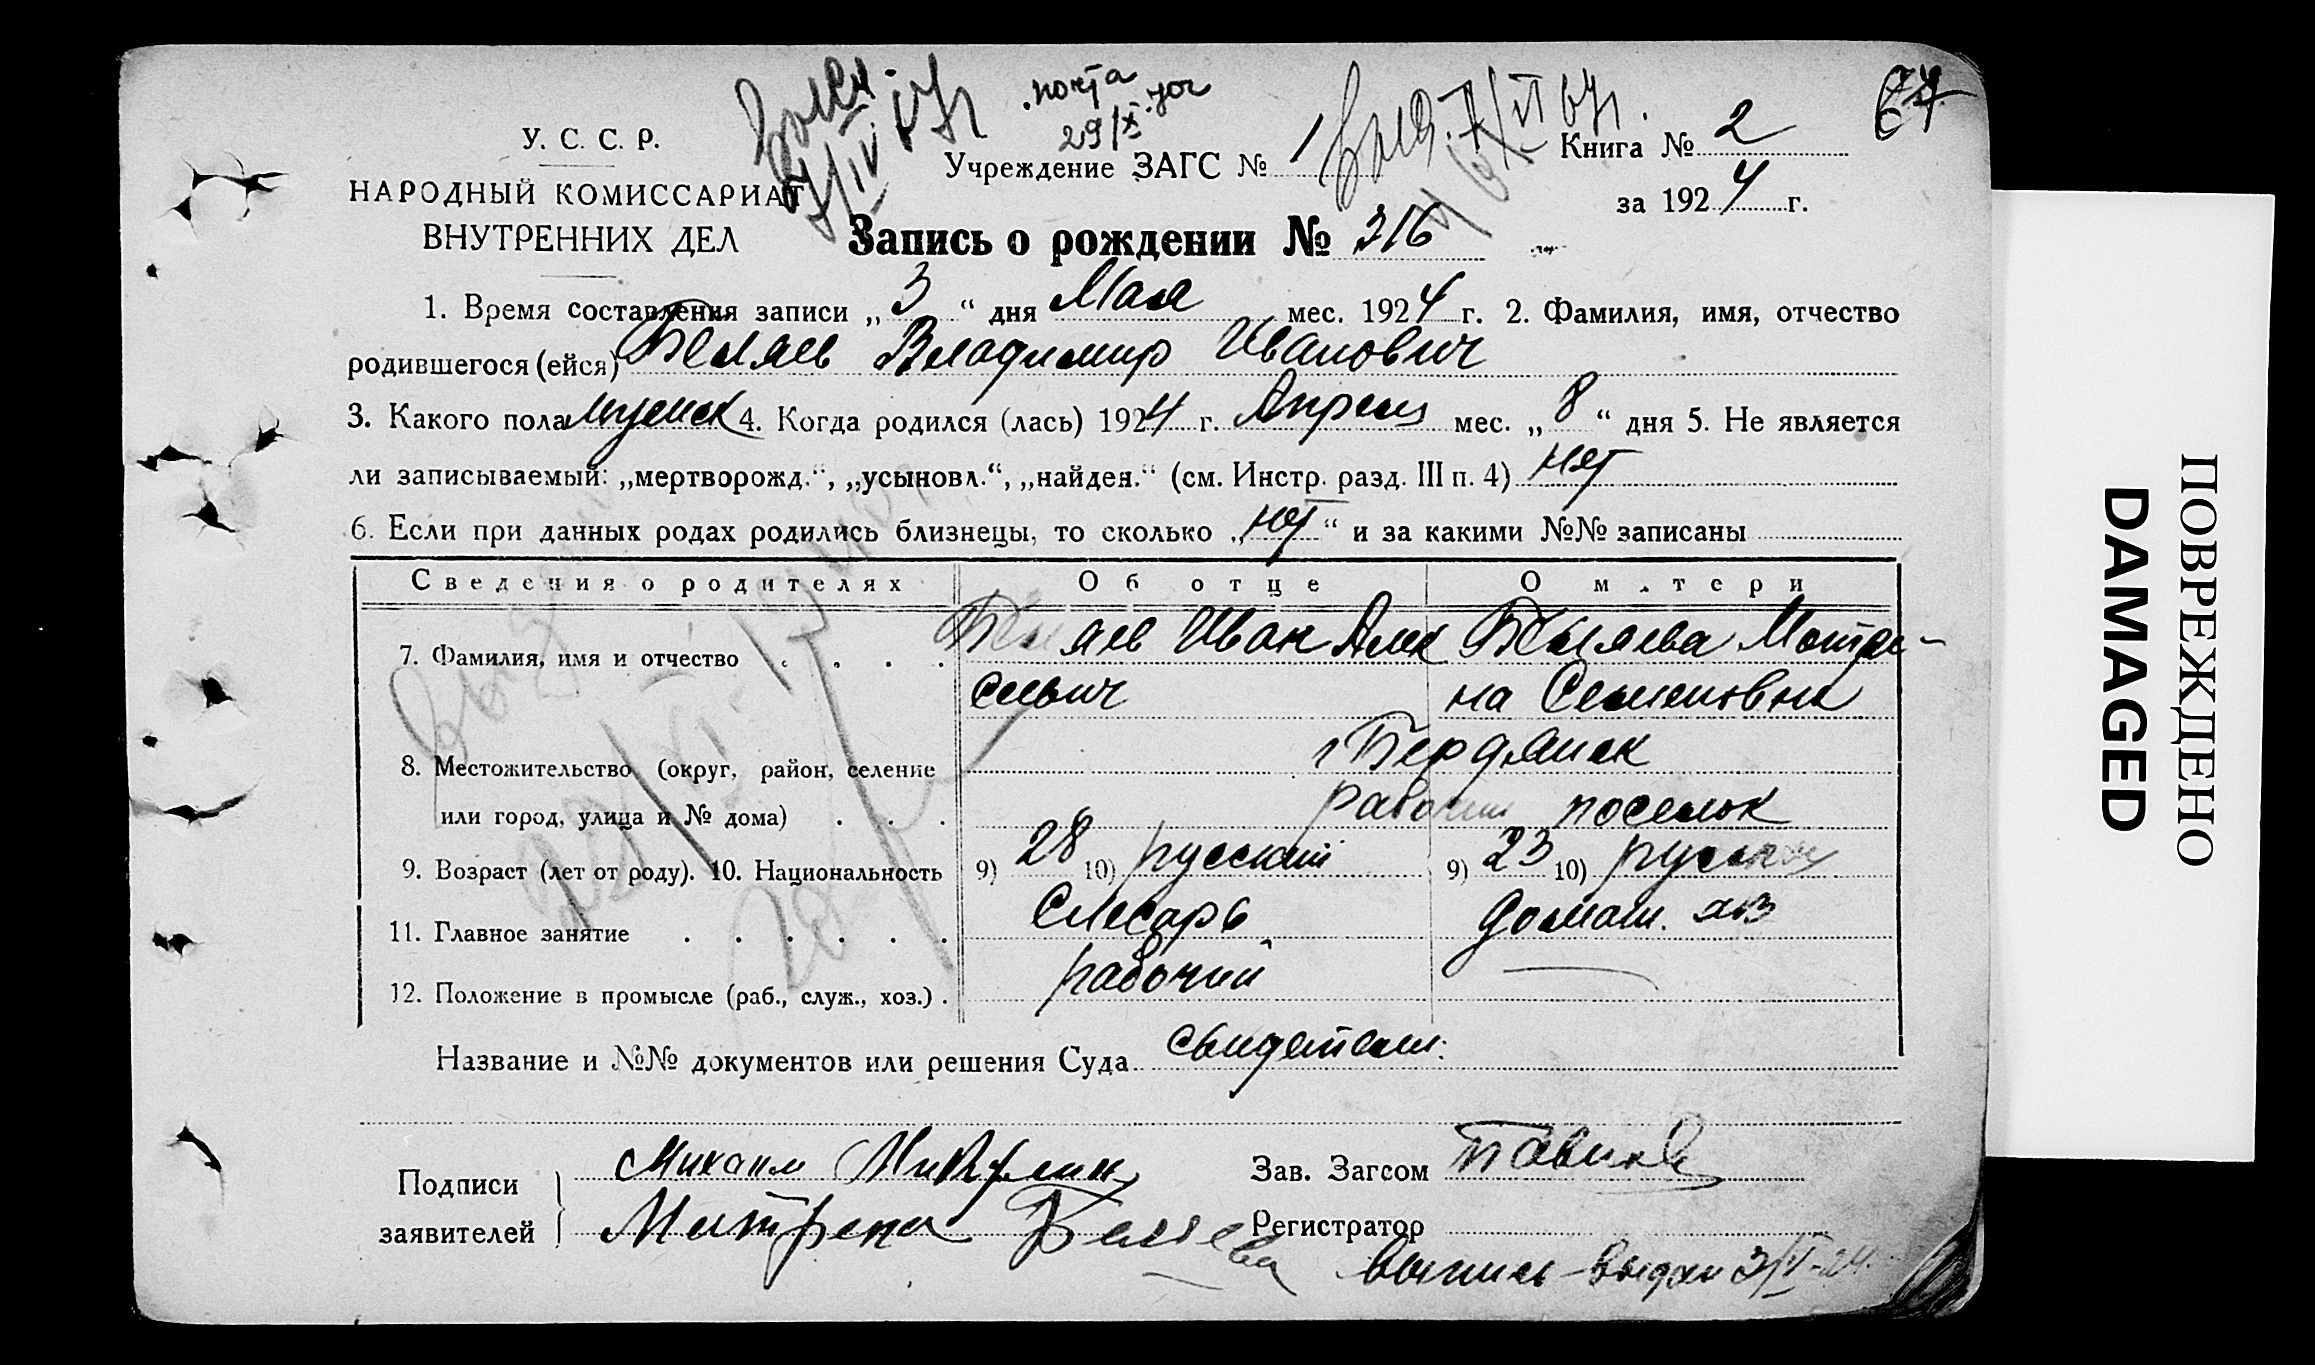 почта
29/X
67
У. С. С. Р.
Учреждение ЗАГС № 1
Книга № 2
НАРОДНЫЙ КОМИССАРИАТ
за 1924 г.
ВНУТРЕННИХ ДЕЛ
Запись о рождении № 316
1. Время составления записи „ 3 “ дня Мая мес. 1924 г. 2. Фамилия, имя, отчество
родившегося (ейся) Беляев Владимир Иванович
3. Какого пола мужск 4. Когда родился (лась) 1924 г. Апреля мес. „ 8 “ дня 5. Не является
ли записываемый: „мертворожд.“, „усыновл.“, „найден.“ (см. Инстр. разд. III п. 4) нет
6. Если при данных родах родились близнецы, то сколько „ нет “ и за какими №№ записаны
Сведения о родителях Об отце О м.тери
7. Фамилия, имя и отчество . . . . Беляев Иван Алек Беляева Матре-
сеевич на Семеновна
г Бердянск
8. Местожительство (округ, район, селение
или город, улица и № дома) . . . рабочий поселок
9. Возраст (лет от роду). 10. Национальность 9) 28 10) русский 9) 23 10) русская
11. Главное занятие . . . . . . Слесарь домаш. хоз
12. Положение в промысле (раб., служ., хоз.) . рабочий
Название и №№ документов или решения Суда свидетели:
Подписи
заявителей
Михаил
Матрена Беляева
Зав. Загсом
Регистратор
выпись выдан 3/V-24
ПОВРЕЖДЕНО
DAMAGED